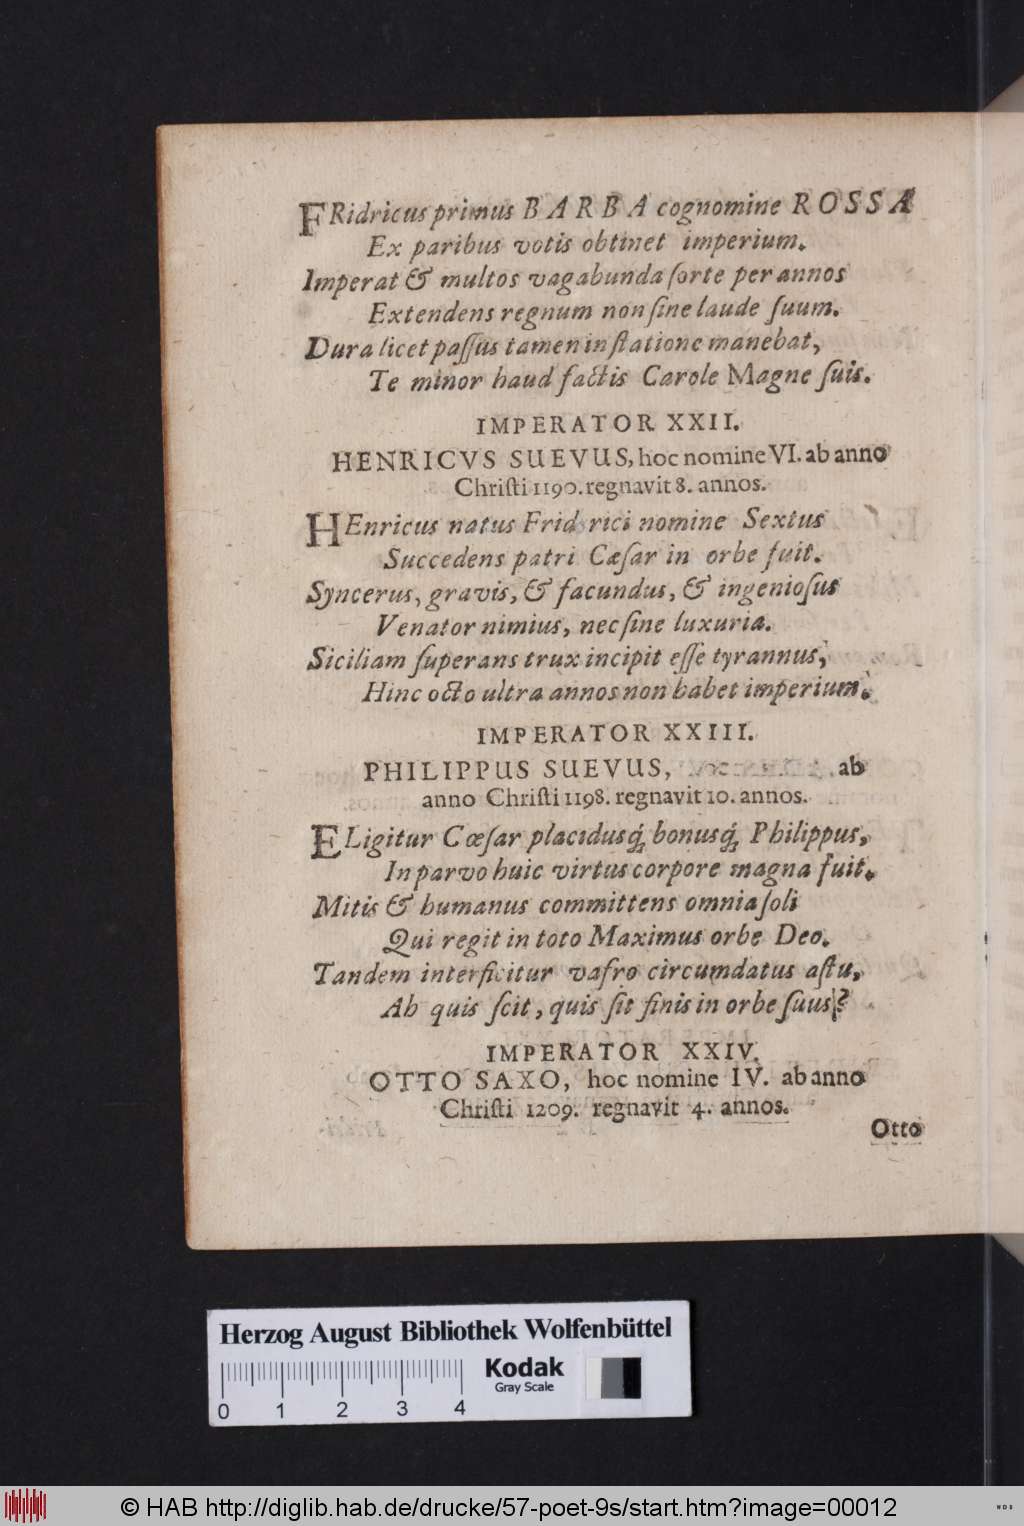 FRidricus primus BARBA cognomine ROSSA
Ex paribus votis obtinet imperium.
Imperat & multos vagabunda ſorte per annos
Extendens regnum non ſine laude ſuum.
Dura licet paſſus tamen in ſtatione manebat,
Te minor haud factis Carole Magne ſuis.
IMPERATOR XXII.
HENRICVS SUEVUS, hoc nomine VI. ab anno
Chriſti 1190. regnavit 8. annos.
HEnricus natus Frid rici nomine Sextus
Succedens patri Cæſar in orbe fuit.
Syncerus, gravis, & facundus, & ingenioſus
Venator nimius, nec ſine luxuria.
Siciliam ſuperans trux incipit eſſe tyrannus,
Hinc octo ultra annos non habet imperium.
IMPERATOR XXIII.
PHILIPPUS SUEVUS, ab
anno Chriſti 1198. regnavit 10. annos.
ELigitur Cœſar placidusq́; bonusq́; Philippus,
In parvo huic virtus corpore magna fuit.
Mitis & humanus committens omnia ſoli
Qui regit in toto Maximus orbe Deo.
Tandem interficitur vafro circumdatus aſtu,
Ah quis ſcit, quis ſit finis in orbe ſuus?
IMPERATOR XXIV.
OTTO SAXO, hoc nomine IV. ab anno
Chriſti 1209. regnavit 4. annos.
Otto
Herzog August Bibliothek Wolfenbüttel
Kodak
Gray Scale
0 1 2 3 4
© HAB http://diglib.hab.de/drucke/57-poet-9s/start.htm?image=00012